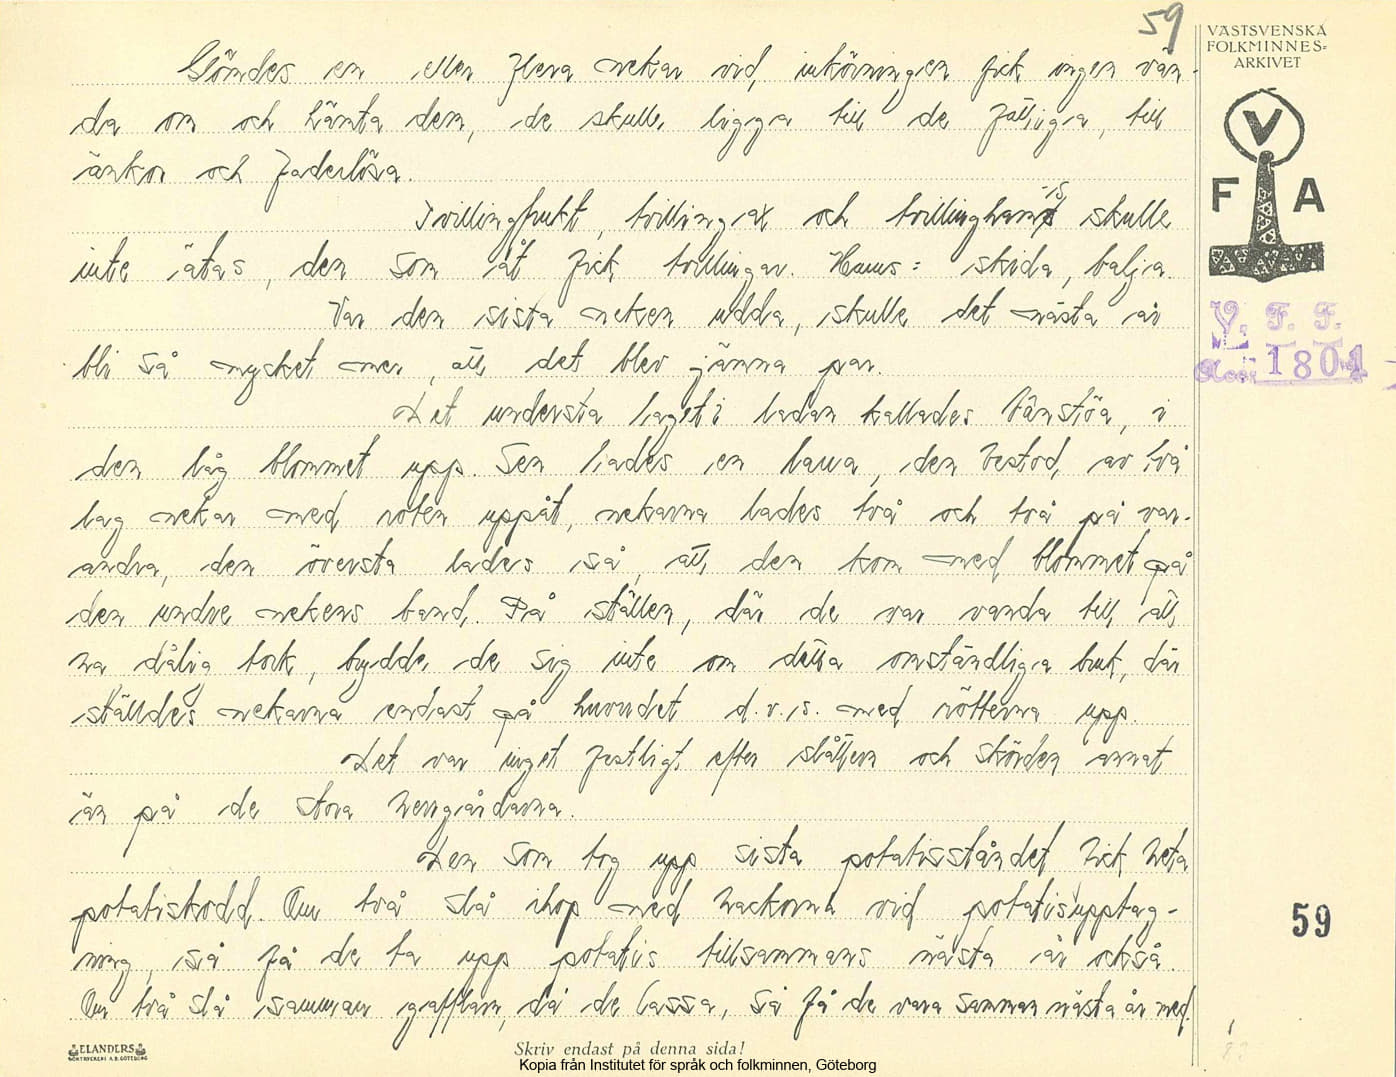 59
VÄSTSVENSKA
FOLKMINNES-
ARKIVET
Glömdes en eller flera nekar vid inkörningen fick ingen vän-
da om och hämta den, de skulle ligga till de fattiga, till
änkor och faderlösa.
Tvillingfrukt, tvillingax och tvillinghams skulle
inte ätas, den som åt fick tvillingar. Hams: skida, balja.
Var den sista neken udda, skulle det nästa år
bli så mycket mer, att det blev jämna par.
Det understa laget i ladan kallades
den låg blommet upp. Sen lades en, den bestod av två
lag nekar med roten uppåt, nekarna lades två och två på var-
andra, den översta lades så, att den kom med blommet på
den undre nekens band. På ställen, där de var vanda till att
ha dålig tork, brydde de sig inte om detta omständliga bruk, där
ställdes nekarna endast på huvudet d.v.s. med rötterna upp.
Det var inget festligt efter slåttern och skörden annat
än på de stora herrgårdarna.
Den som tog upp sista potatisståndet fick heta
potatiskodd. Om två slå ihop med hackorna vid potatisupptag-
ning, så få de ta upp potatis tillsammans nästa år också.
Om två slå samman gafflarn, då de lassa, så få de vara samman nästa år med.
V
F A
V. F. F.
Acc. 1804
59
ELANDERS
GÖTEBORG
Skriv endast på denna sida!
Kopia från Institutet för språk och folkminnen, Göteborg